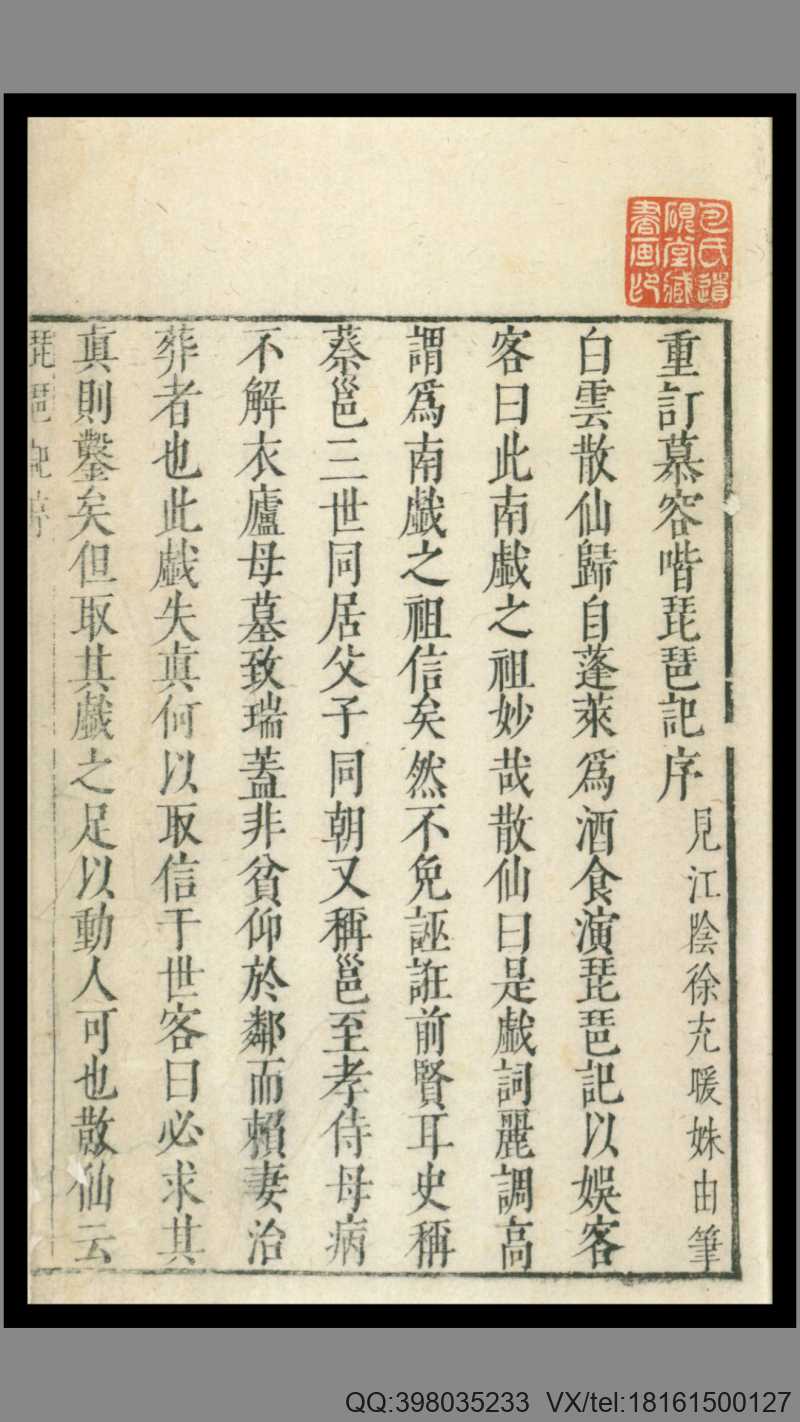 重訂慕容喈琵琶記序見江陰徐充暖姝由筆
白雲散仙歸自蓬萊爲酒食演琵琶記以娛客
客曰此南戲之祖妙哉散仙曰是戲詞麗調高
謂爲南戲之祖信矣然不免誣誑前賢耳史稱
蔡邕三世同居父子同朝又稱邕至孝侍母病
不解衣廬母墓致瑞蓋非貧仰於鄰而賴妻治
葬者也此戲失真何以取信于世客曰必求其
真則鑿矣但取其戲之足以動人可也散仙云
琵琶記序
包氏遺
硯堂藏
書画印
QQ:398035233 VX/tel:18161500127